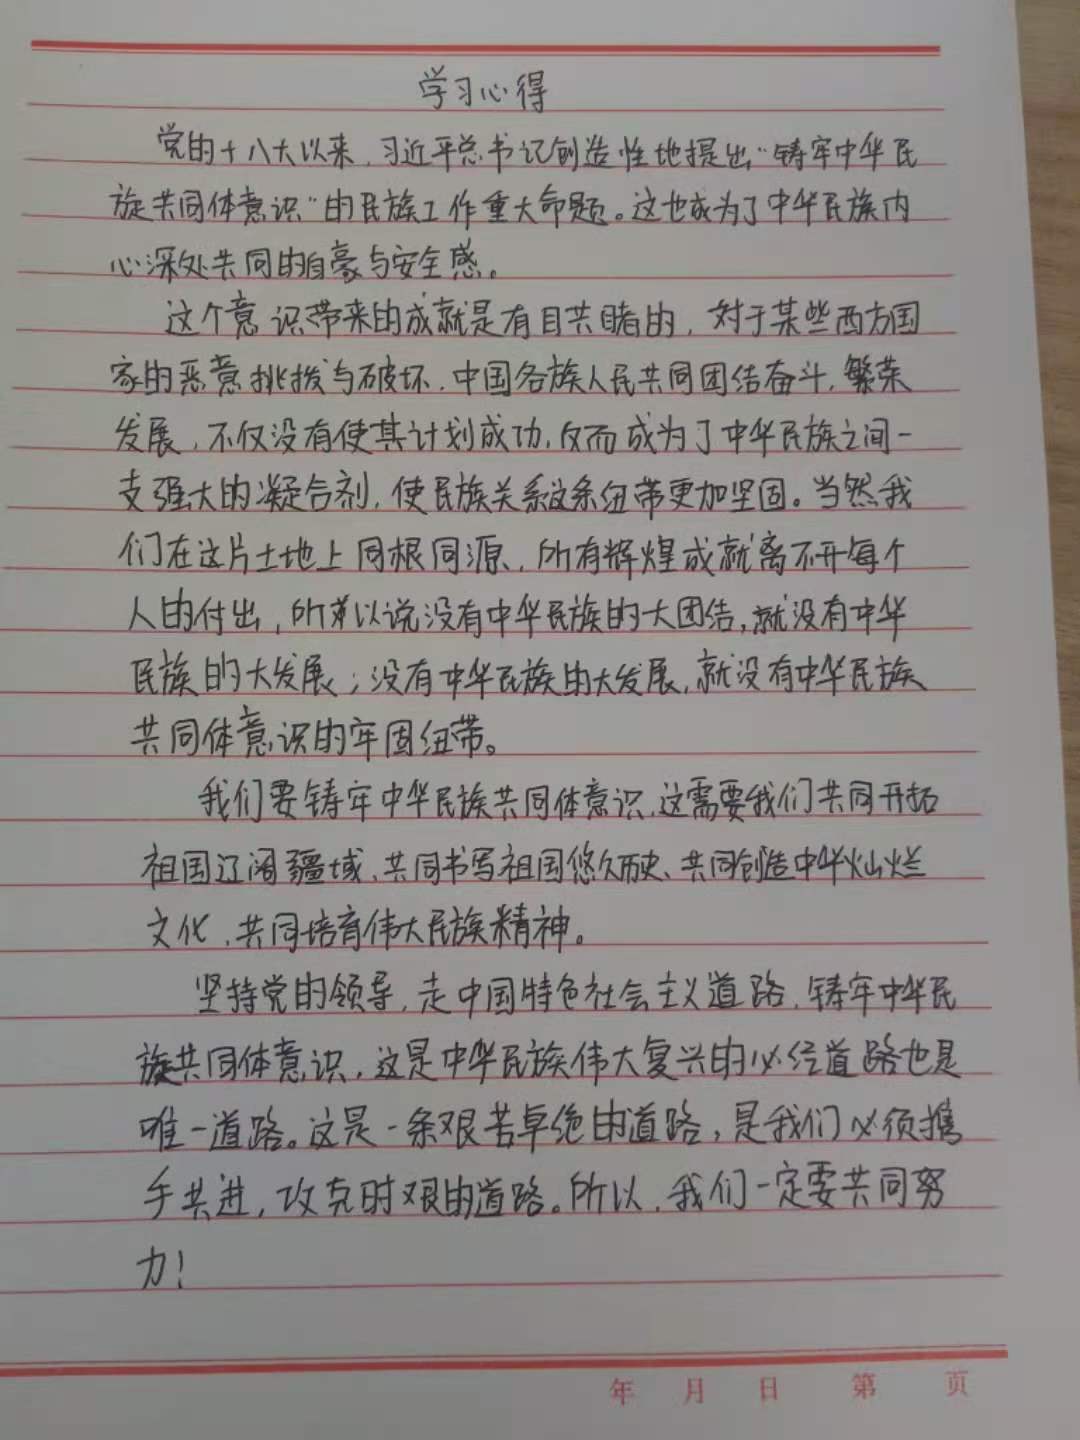 学习心得
党的十八大以来，习近平总书记创造性地提出“铸牢中华民
族共同体意识”的民族工作重大命题。这也成为了中华民族内
心深处共同的自豪与安全感。
这个意识带来的成就是有目共睹的，对于某些西方国
家的恶意挑拨与破坏，中国各族人民共同团结奋斗，繁荣
发展，不仅没有使其计划成功，反而成为了中华民族之间一
支强大的凝合剂，使民族关系这条纽带更加坚固。当然我
们在这片土地上同根同源，所有辉煌成就离不开每个
人的付出，所以说没有中华民族的大团结，就没有中华
民族的大发展；没有中华民族的大发展，就没有中华民族
共同体意识的牢固纽带。
我们要铸牢中华民族共同体意识，这需要我们共同开拓
祖国辽阔疆域、共同书写祖国悠久历史、共同创造中华灿烂
文化、共同培育伟大民族精神。
坚持党的领导，走中国特色社会主义道路，铸牢中华民
族共同体意识，这是中华民族伟大复兴的必经道路也是
唯一道路。这是一条艰苦卓绝的道路，是我们必须携
手共进，攻克时艰的道路。所以，我们一定要共同努
力！
年 月 日 第 页